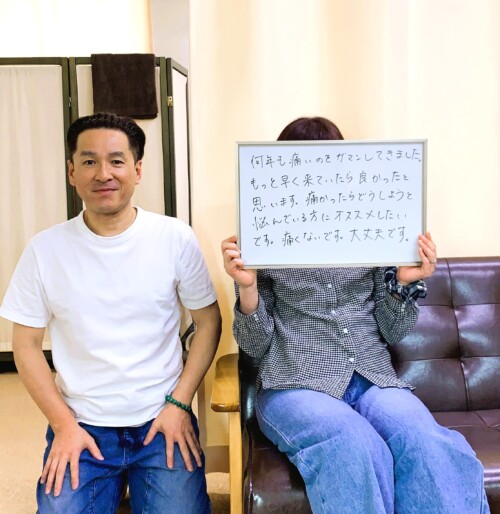 何年も痛いのをガマンしてきました。
もっと早く来ていたら良かったと
思います。痛かったらどうしようと
悩んでいる方にオススメしたい
です。痛くないです。大丈夫です。